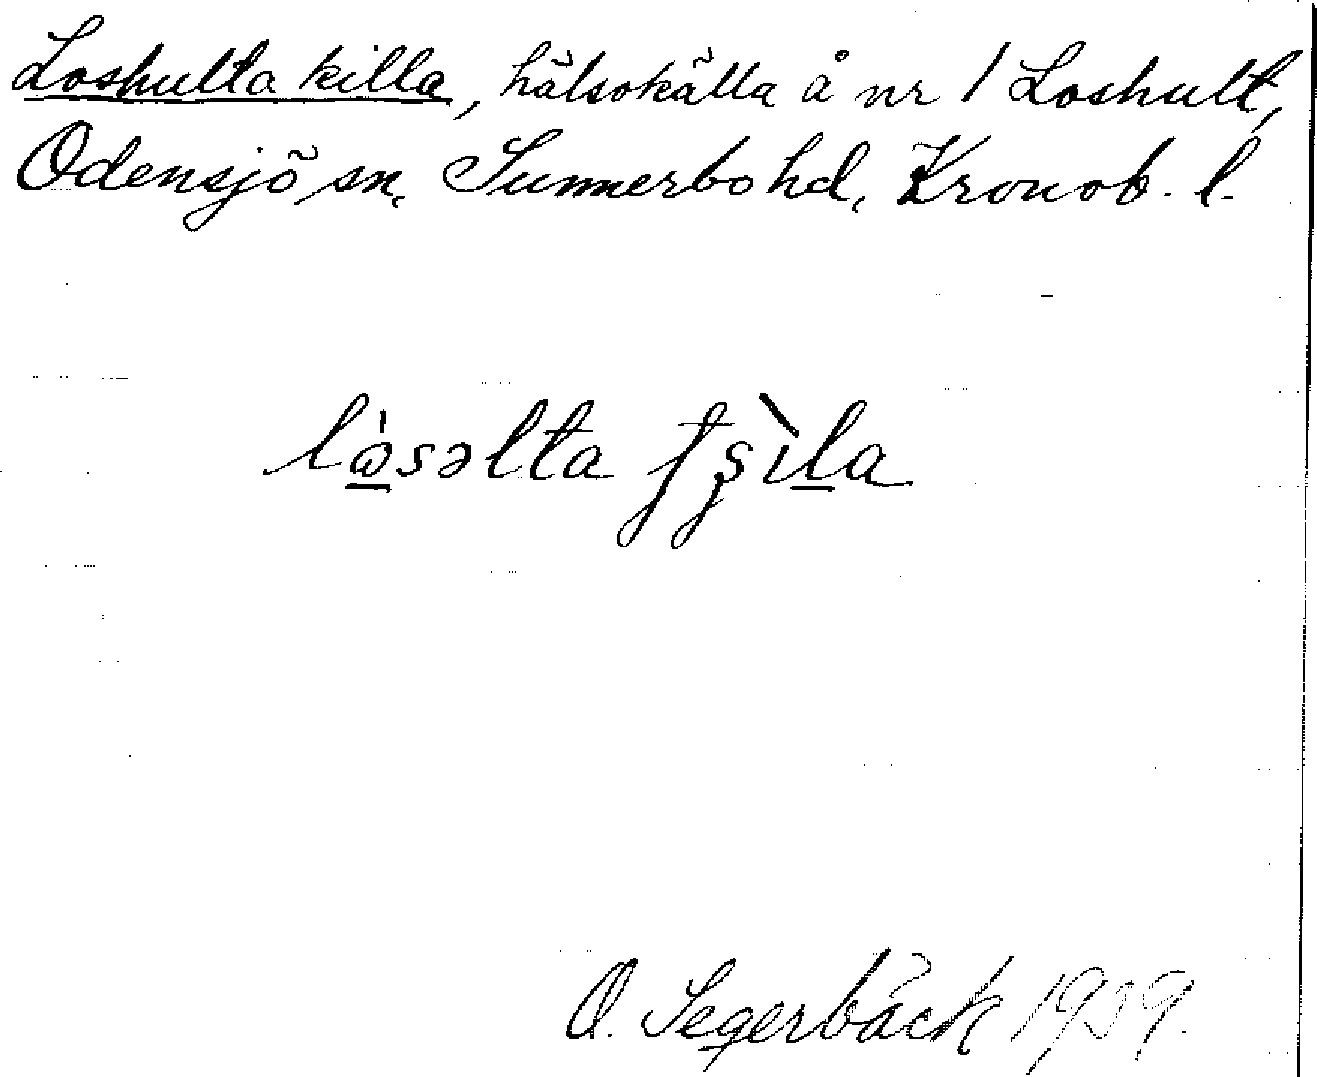 Loshulta killa, hälsokälla å nr 1 Loshult,
Odensjö sn, Sunnerbo hd, Kronob. l.
O. Segerbäck 1939.